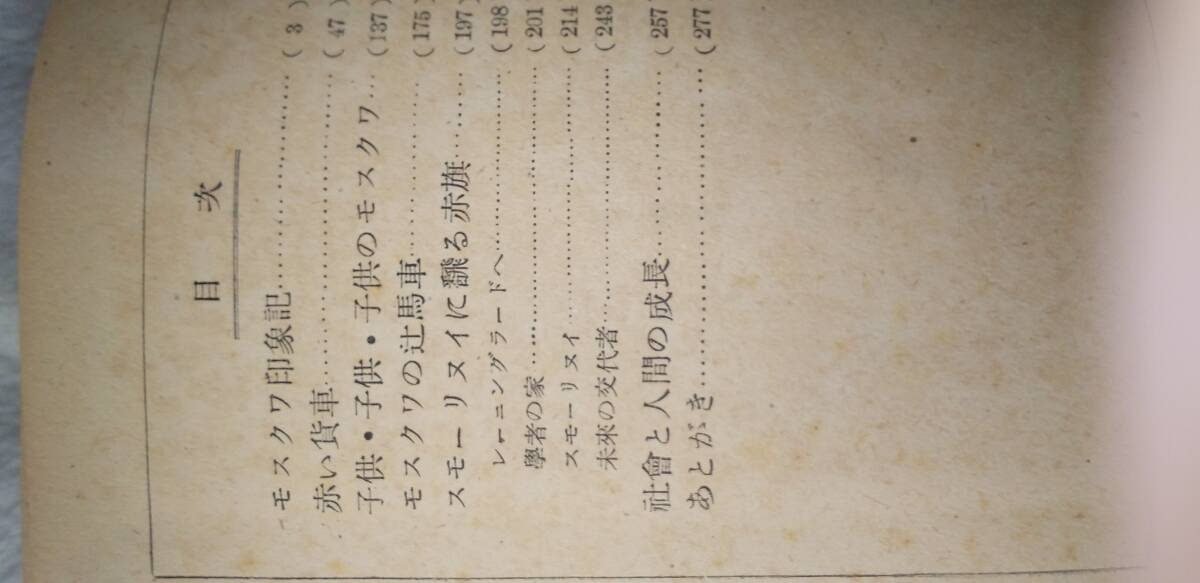 目次
モスクワ印象記……………………( 3 )
赤い貨車……………………………( 47 )
子供・子供・子供のモスクワ…(137)
モスクワの辻馬車…………………(175)
スモーリヌイに飜る赤旗…………(197)
レーニングラードへ………………(198
學者の家……………………………(201
スモーリヌイ………………………(214
未來の交代者………………………(243
社會と人間の成長…………………(257)
あとがき……………………………(277)